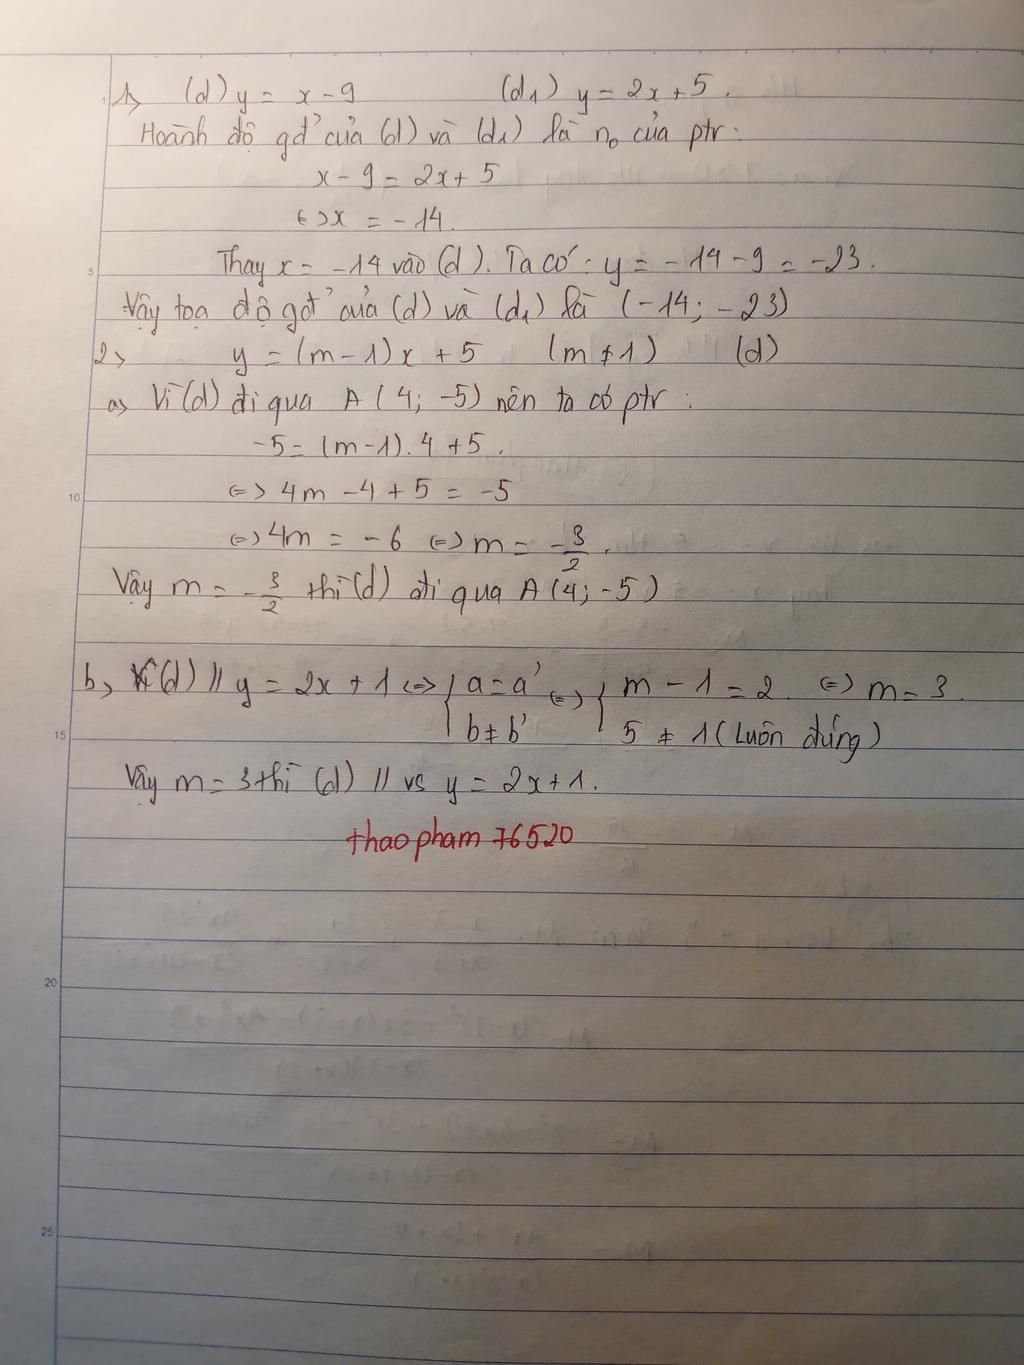 1> (d) y = x - 9 (d1) y = 2x + 5.
Hoành độ gđ' của (d) và (d1) là no của ptr:
x - 9 = 2x + 5
<=> x = -14.
Thay x = -14 vào (d). Ta có: y = -14 - 9 = -23.
Vậy toạ độ gđ' của (d) và (d1) là (-14; -23)
2> y = (m - 1)x + 5 (m ≠ 1) (d)
a> Vì (d) đi qua A (4; -5) nên ta có ptr:
-5 = (m - 1). 4 + 5.
<=> 4m - 4 + 5 = -5
<=> 4m = -6 <=> m = -3/2.
Vậy m = -3/2 thì (d) đi qua A (4; -5)
b> (d) // y = 2x + 1 <=> { a = a' <=> { m - 1 = 2 <=> m = 3.
b ≠ b' 5 ≠ 1 (Luôn đúng)
Vậy m = 3 thì (d) // vs y = 2x + 1.
thaopham 76520
5
10
15
20
25